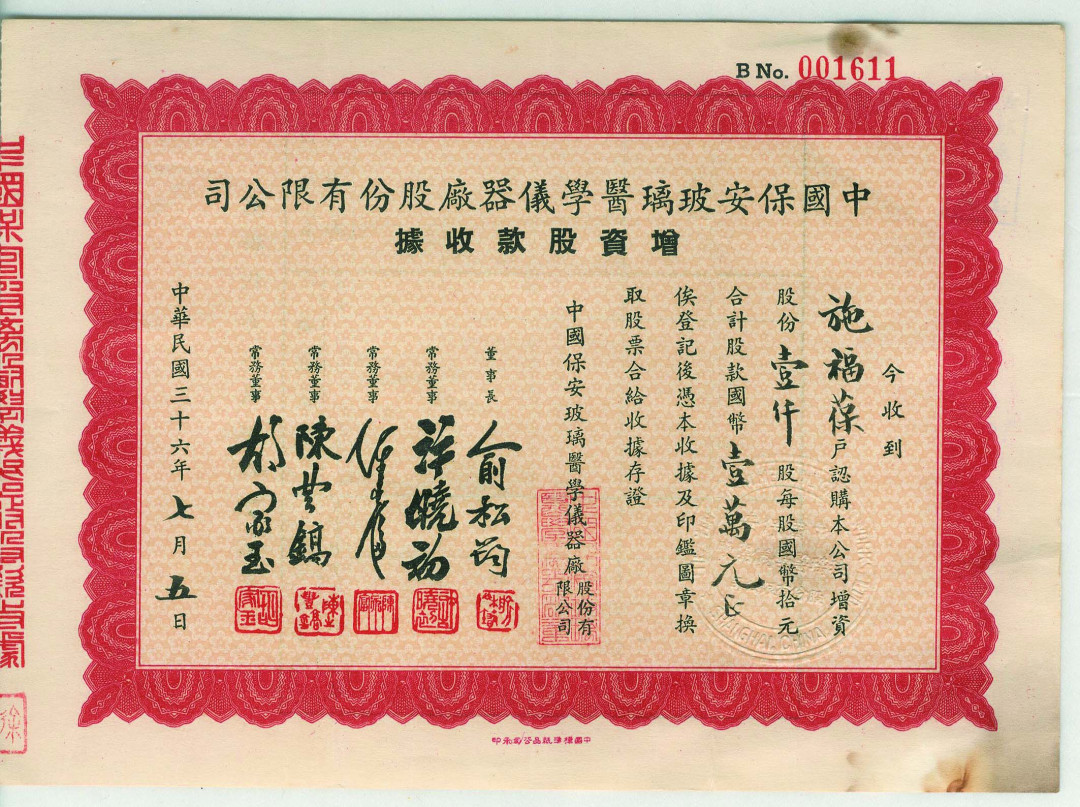 B No. 001611
中國保安玻璃醫學儀器廠股份有限公司
增資股款收據
今收到
施福葆戶認購本公司增資
股份壹仟股每股國幣拾元
合計股款國幣壹萬元正
俟登記後憑本收據及印鑑圖章換
取股票合給收據存證
中國保安玻璃醫學儀器廠股份有限公司
董事長 俞松筠
常務董事 許曉初
常務董事
常務董事 陳豐鎬
常務董事 胡家玉
中華民國三十六年七月五日
SHANGHAI, CHINA
徐